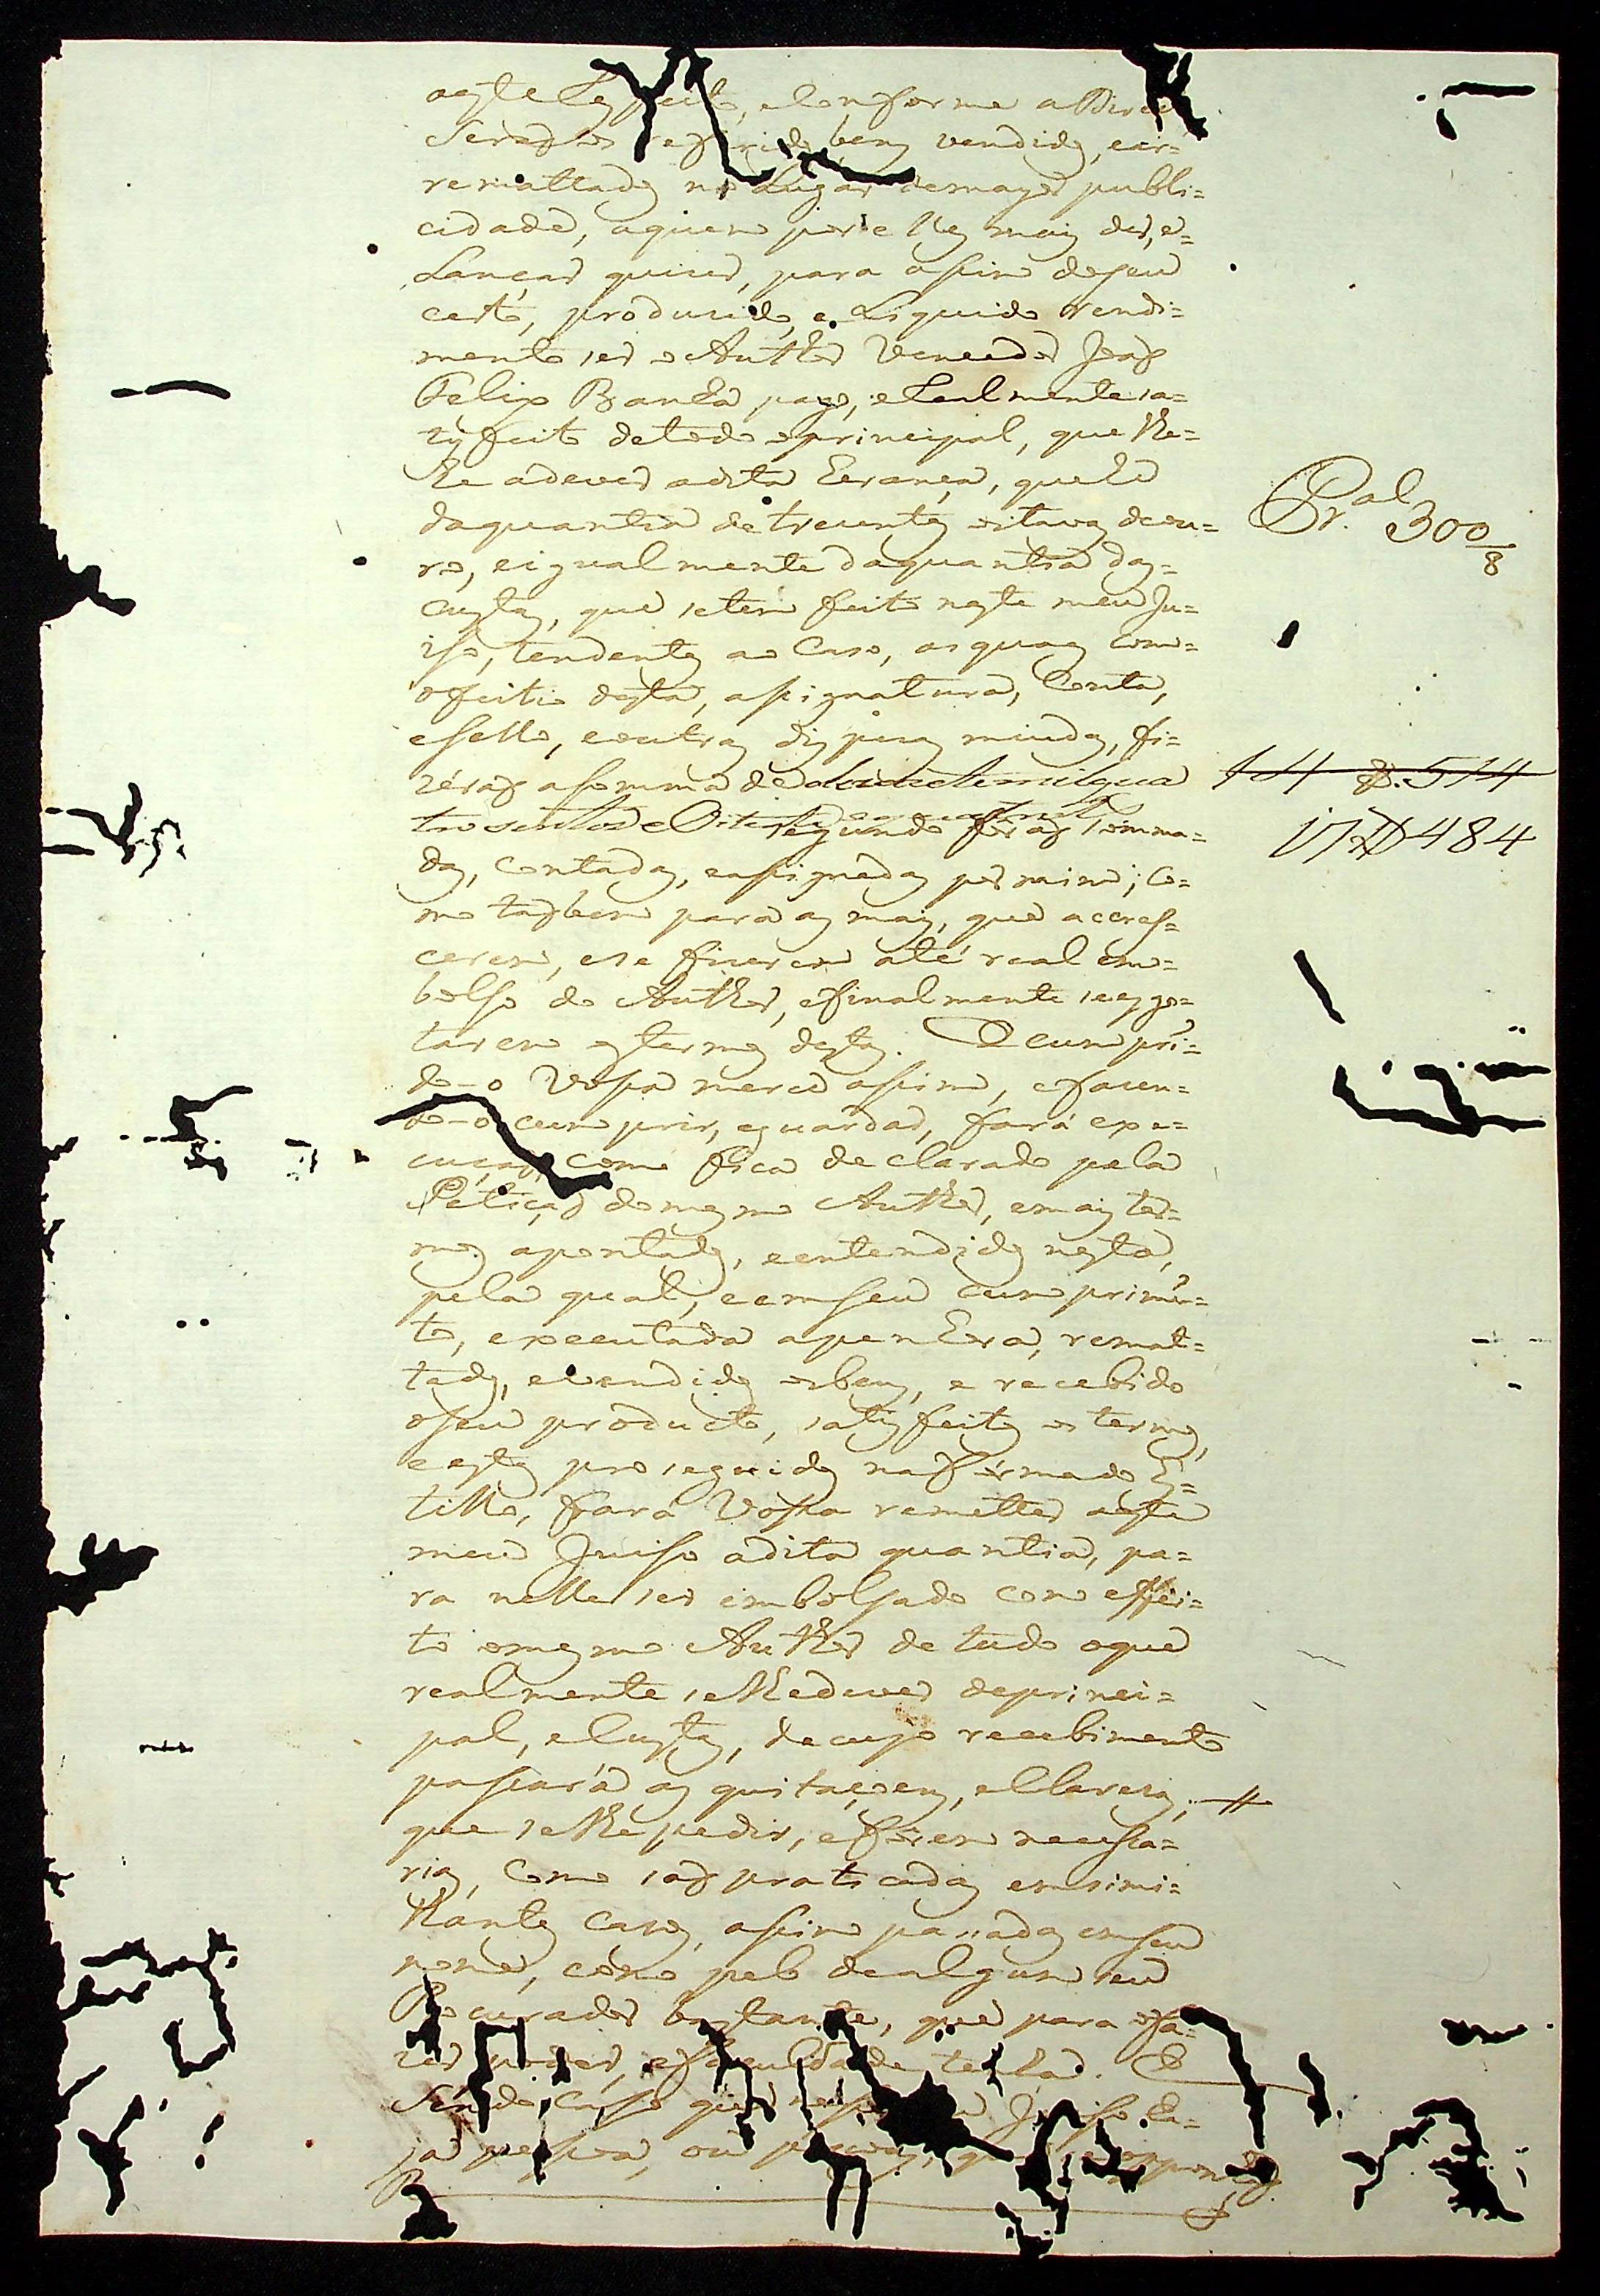 a este Respeito, e Conforme a Direi
Seraõ os referidos bens vendidos, e ar=
remattados no Lugar de mayor publi=
cidade, a quem por elles mais der, e=
Lançar quizer, para assim de seu
certo, produzido, e Liquido rendi=
mento ser o Author Vencedor Joaõ
Felix Banha pago, e Realmente sa=
tisfeito de todo o principal, que lhe=
he a dever a dita herança, que he
da quantia de trezentas oitavas de ou=
ro, e igualmente da quantia das=
custas, que se tem feito neste meu Ju=
iso, tendentes ao Caso, as quaes com=
o feitio desta, assignatura, Conta,
e sello, e outras dispezas miudas, fi=
zéraõ a somma de dezasete mil qua
tro sentos e Oitenta e quatro reis
segundo foraõ somma=
das, Contadas, e assignadas por mim; Co=
mo taõbem para as mais, que accres=
cerem, e se fizerem até real em=
bolso do Author, e finalmente se esgo=
tarem os termos destas. E cumpri=
do-o Vossa merce assim, e fazen=
do-o cumprir, e guardar, fará exe=
cuçaõ, como fica declarado pela
Petiçaõ do mesmo Author, e mais ter=
mos apontados, e entendidos nesta,
pela qual, e em seu cumprimen=
to, executada a penhora, remat=
tados, e vendidos os bens, e recebido
o seu producto, satisfeitos os termos,
e estes proseguidos na fórma do Es=
tillo, fará Vossa remetter a este
meu Juiso a dita quantia, pa=
ra nelle ser embolsado com effei=
to o mesmo Author de tudo o que
realmente se lhe dever de princi=
pal, e Custas, de cujo recebimento
passará as quitaçoens, e Clarezas,
que se lhe pedir, e forem necessa=
rias, Como saõ praticadas em simi=
lhantes Casos, assim passadas em seu
nome, como pelo de algum seu
Procurador bastante, que para o fa=
zer poder, e faculdade tenha. E
Sendo Caso que nesse Juiso ha=
ja pessoa, ou pessoas, que se opponhaõ
Pr.al 300/8
14 $ 514
17$484